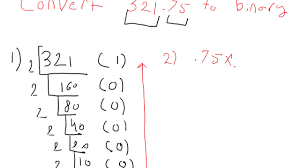 Convert 321.75 to binary
1) 2 321 (1) 2) .75x.
2 160 (0)
2 80 (0)
2 40 (0)
2 20 (0)
2 10 (0)